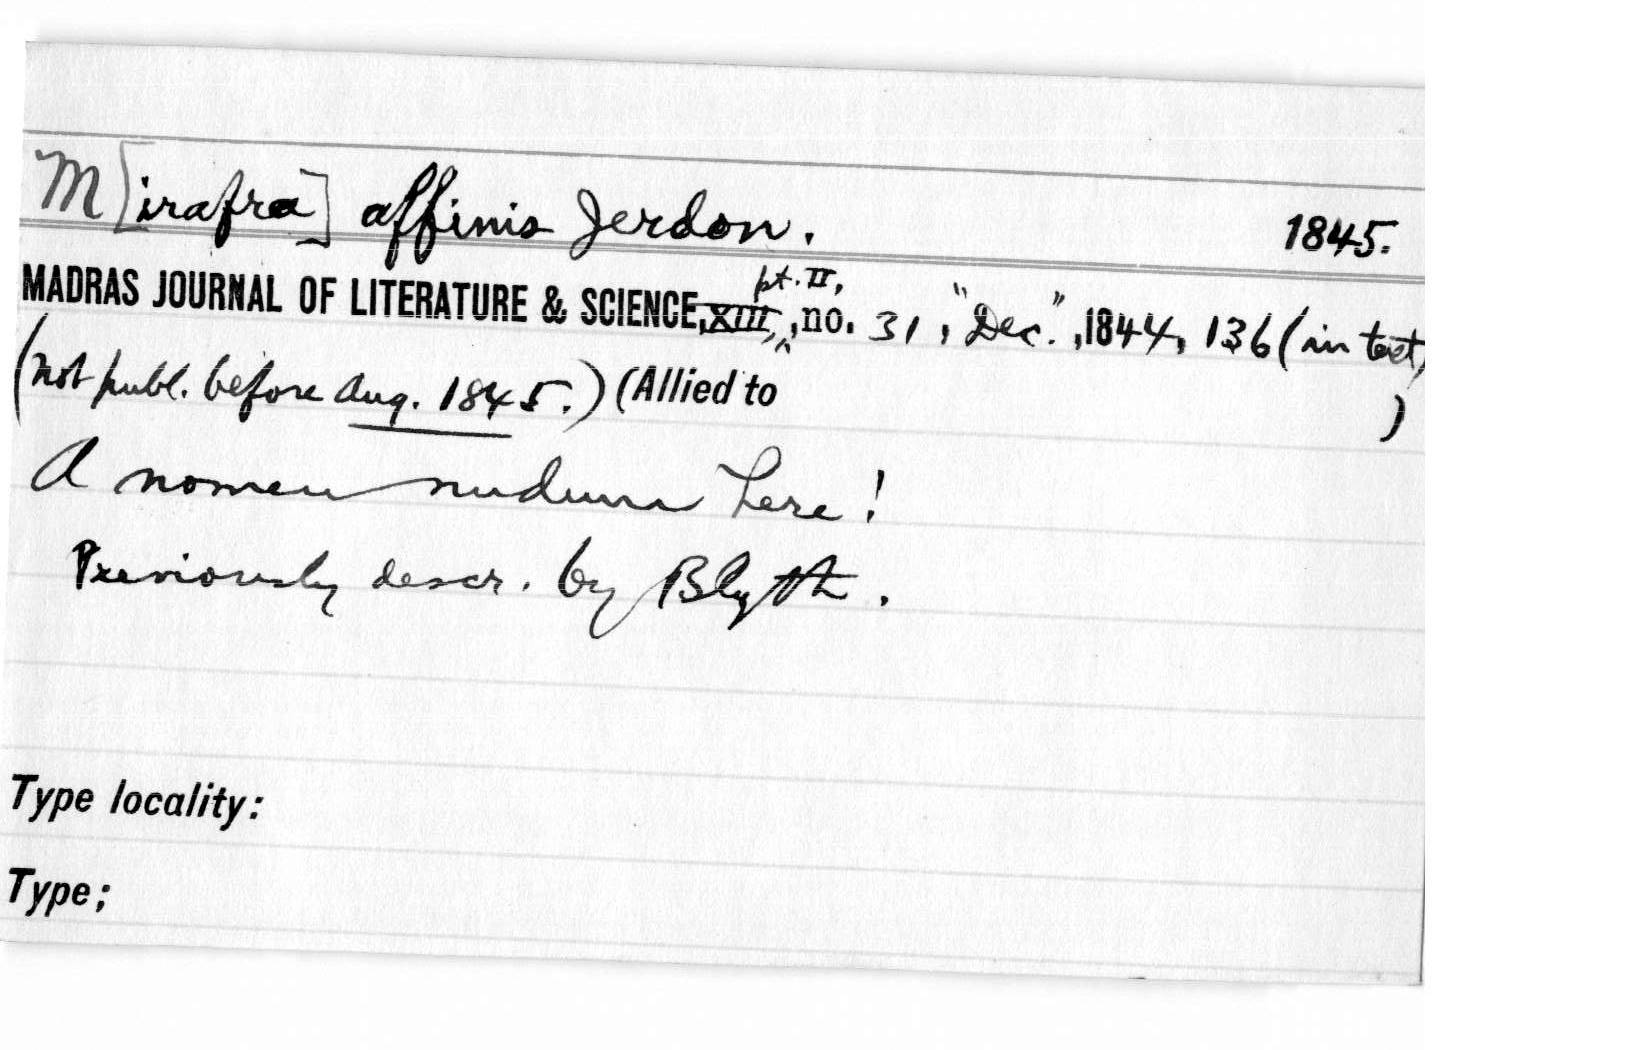 M[irafra] affinis Jerdon. 1845.
MADRAS JOURNAL OF LITERATURE & SCIENCE, XIII, pt. II, no. 31, "Dec.", 1844, 136 (in text)
(not publ. before Aug. 1845.) (Allied to )
A nomen nudum here!
Previously descr. by Blyth.
Type locality:
Type;